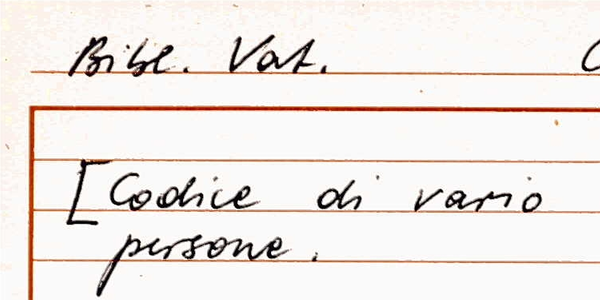 Bibl. Vat.
[Codice di vario
persone.